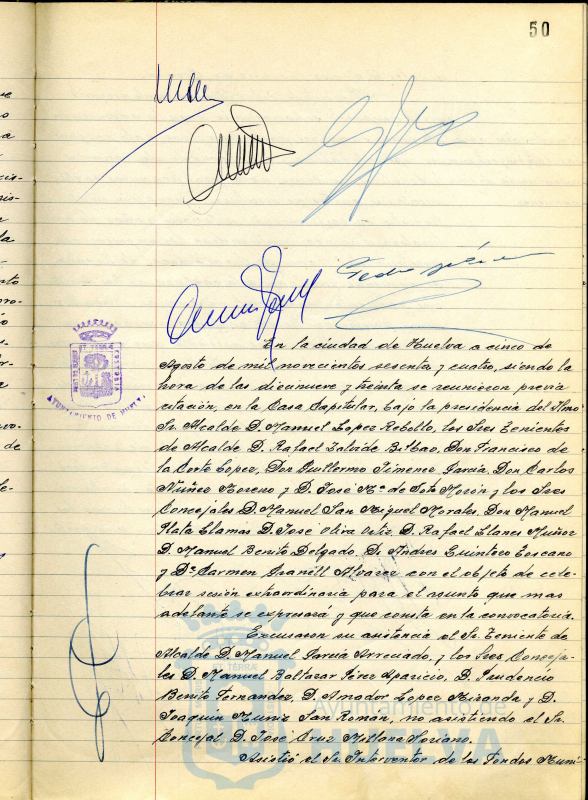 50
En la ciudad de Huelva a cinco de
Agosto de mil novecientos sesenta y cuatro, siendo la
hora de las diecinueve y treinta se reunieron previa
citación, en la Casa Capitular, bajo la presidencia del Ilmo
Sr. Alcalde D. Manuel Lopez Rebollo, los Sres Tenientes
de Alcalde D. Rafael Bilbao, Don Francisco de
la Corte Lopez, Don Guillermo Jimenez Garcia, Don Carlos
Nuñez Moreno y D. José Mª de Soto Morón y los Sres
Concejales D. Manuel San Miguel Morales, Don Manuel
Plata Llamas D. José Oliva Ortiz D. Rafael Llanes Muñoz
D. Manuel Benito Delgado. D. Andres Quintero Toscano
y Dª Carmen Alvarez con el objeto de cele-
brar sesión extraordinaria para el asunto que mas
adelante se expresará y que consta en la convocatoria.
Excusaron su asistencia el Sr. Teniente de
Alcalde D. Manuel Garcia Arreciado, y los Sres Conceja-
les D. Manuel Baltasar Pérez Aparicio, D. Prudencio
Benito Fernandez, D. Amador Lopez Miranda y D.
Joaquin Muniz San Román, no asistiendo el Sr.
Concejal D. José Cruz Millara Soriano.
Asistió el Sr. Interventor de los Fondos Muni-
AYUNTAMIENTO DE HUELVA
Ayuntamiento de
HUELVA